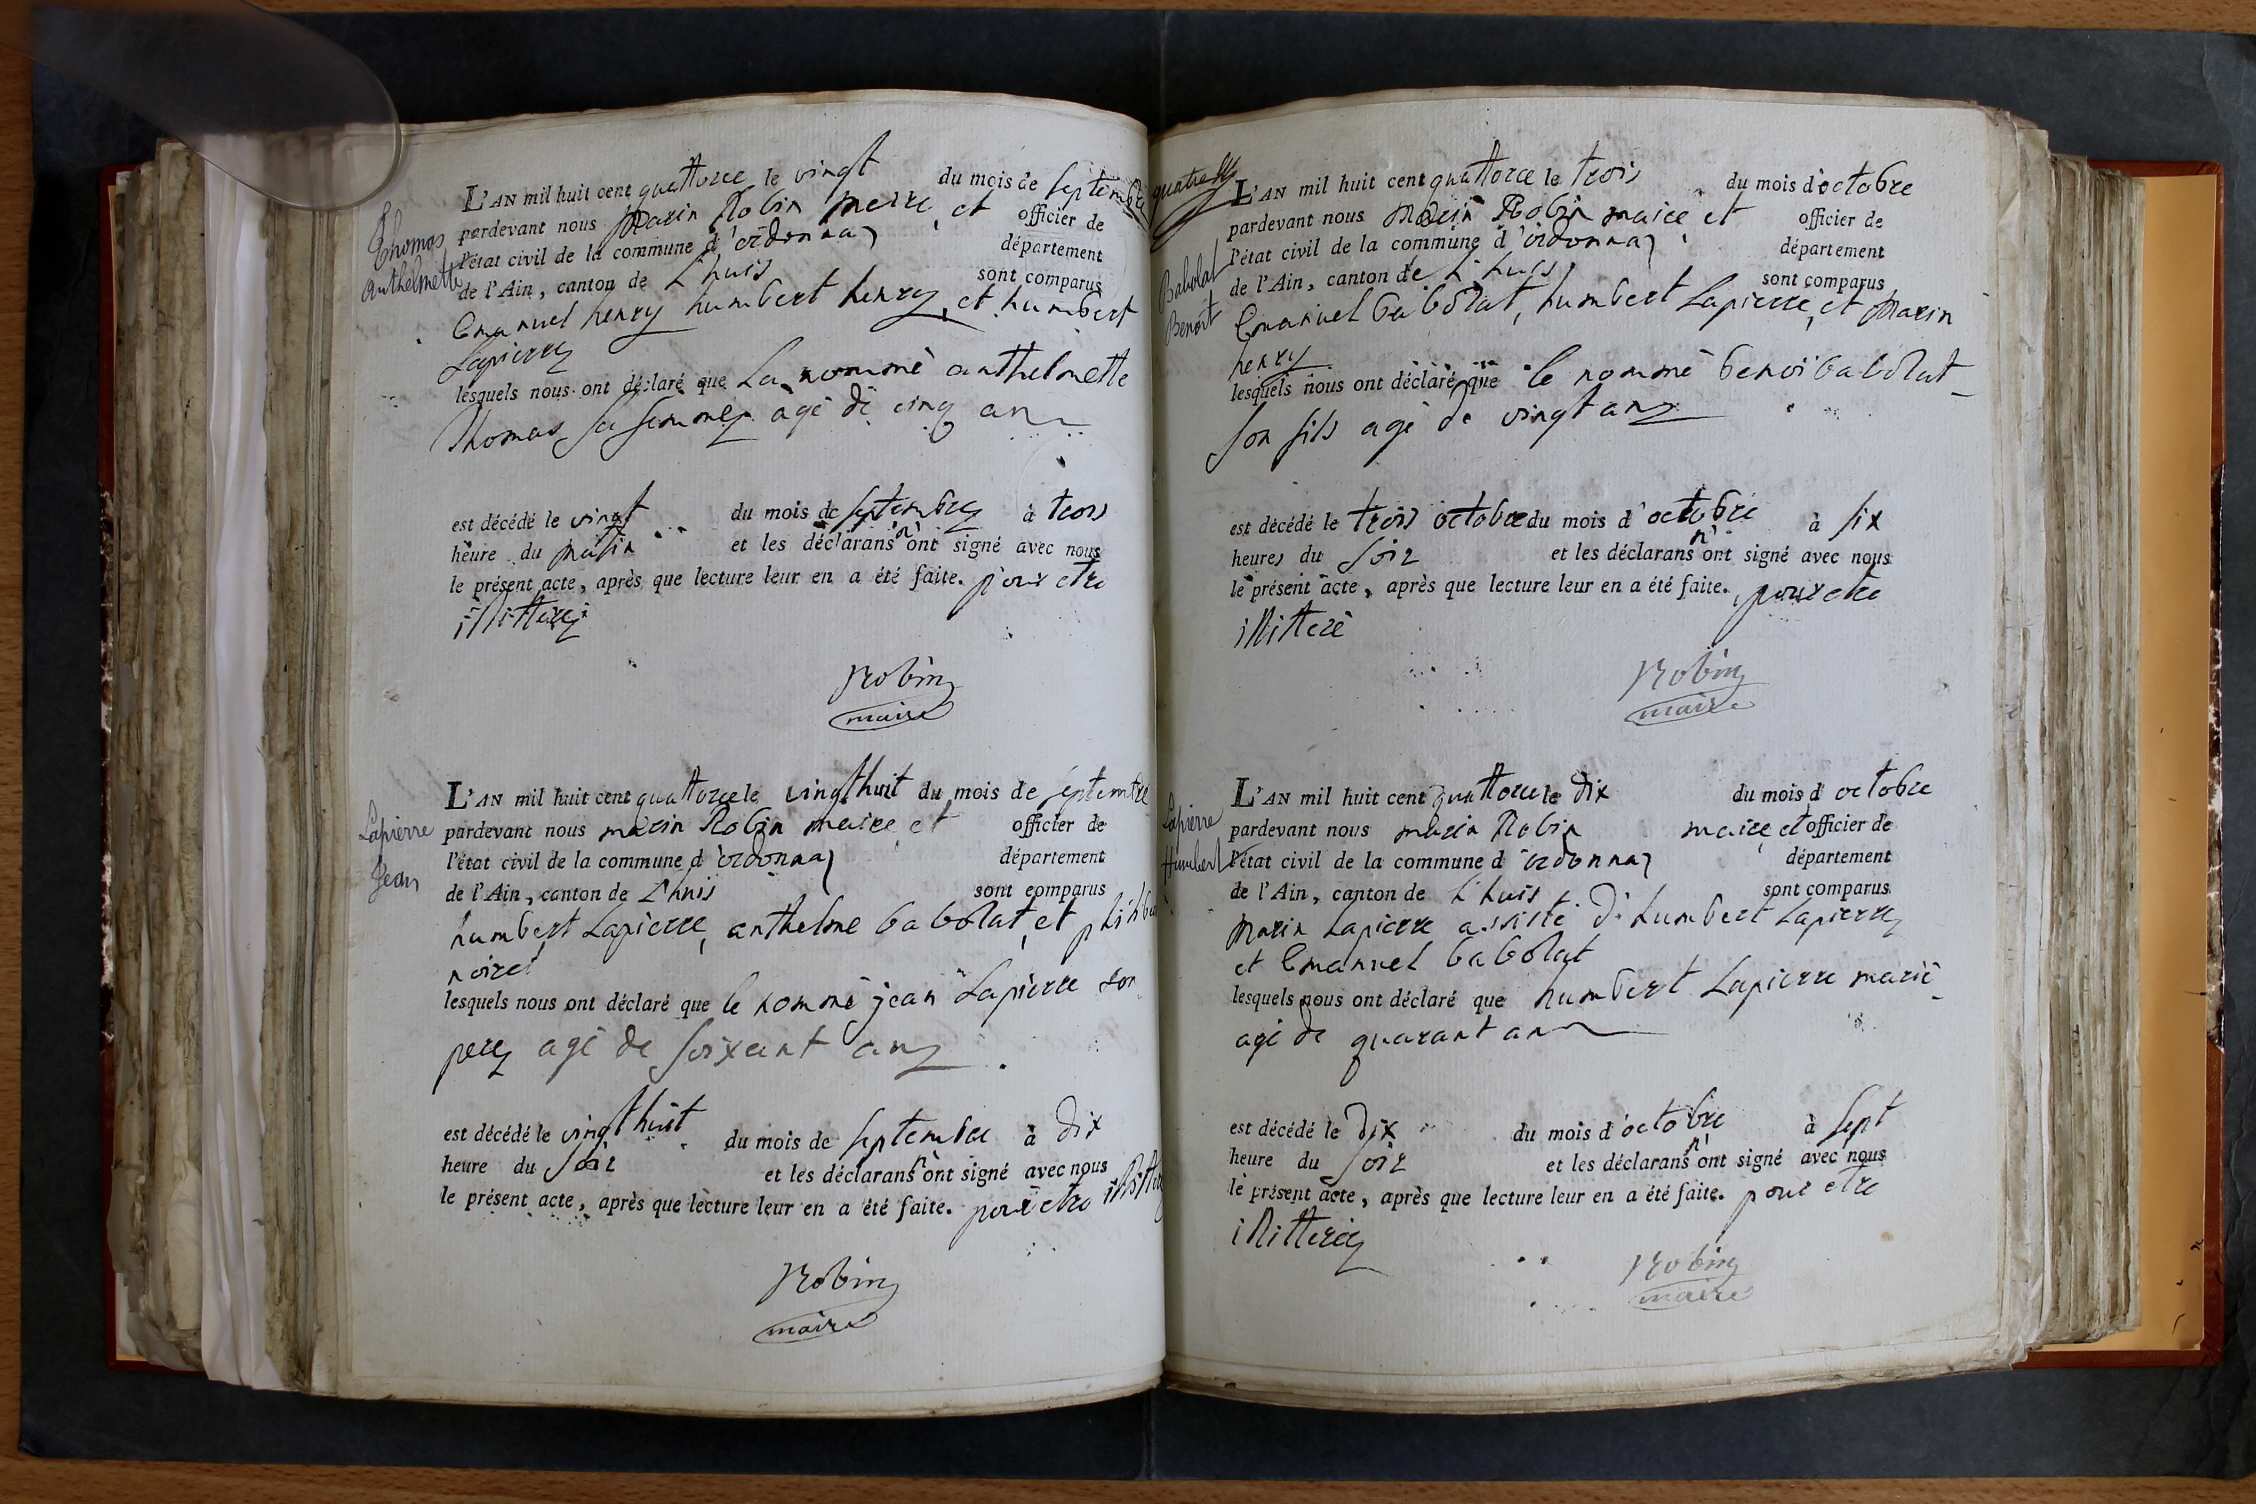 Thomas
Anthelmette
L'AN mil huit cent quattorce le vingt du mois de septembre
pardevant nous Marin Robin meire et officier de
l'état civil de la commune d'ordonnaz département
de l'Ain, canton de L'huis sont comparus
Emanuel henry humbert henry, et humbert
Lapierre
lesquels nous ont déclaré que La nommè anthelmette
Thomas sa femme agè de cinq an
est décédé le vingt du mois de septembre à trois
heure du matin et les déclarans n'ont signé avec nous
le présent acte, après que lecture leur en a été faite. pour etre
illitteré
Robin
maire
Lapierre
Jean
L'AN mil huit cent quattorce le vingthuit du mois de septembre
pardevant nous marin Robin maire et officier de
l'état civil de la commune d'ordonnaz département
de l'Ain, canton de L'huis sont comparus
humbert Lapierre, anthelme babolat, et
noirei
lesquels nous ont déclaré que le nommé jean Lapierre son
pere agé de soixant an
est décédé le vingthuit du mois de septembre à dix
heure du soir et les déclarans n'ont signé avec nous
le présent acte, après que lecture leur en a été faite. pour etre
Robin
maire
Babolat
Benoit
L'AN mil huit cent quattorce le trois du mois d'octobre
pardevant nous Marin Robin maire et officier de
l'état civil de la commune d'ordonnaz département
de l'Ain, canton de L'huis sont comparus
Emanuel babolat, humbert Lapierre, et Marin
henry
lesquels nous ont déclaré que le nommè benoi babolat
son fils agé de vingt an
est décédé le trois octobre du mois d'octobre à six
heures du soir et les déclarans n'ont signé avec nous
le présent acte, après que lecture leur en a été faite. pour etre
illitterè
Robin
maire
Lapierre
Humbert
L'AN mil huit cent quattorce le dix du mois d'octobre
pardevant nous marin Robin maire et officier de
l'état civil de la commune d'ordonnaz département
de l'Ain, canton de L'huis sont comparus
Marin Lapierre assisté di humbert Lapierre
et Emanuel babolat
lesquels nous ont déclaré que humbert Lapierre marié
agé de quarant an
est décédé le dix du mois d'octobre à sept
heure du soir et les déclarans n'ont signé avec nous
le présent acte, après que lecture leur en a été faite. pour etre
illitteré
Robin
maire